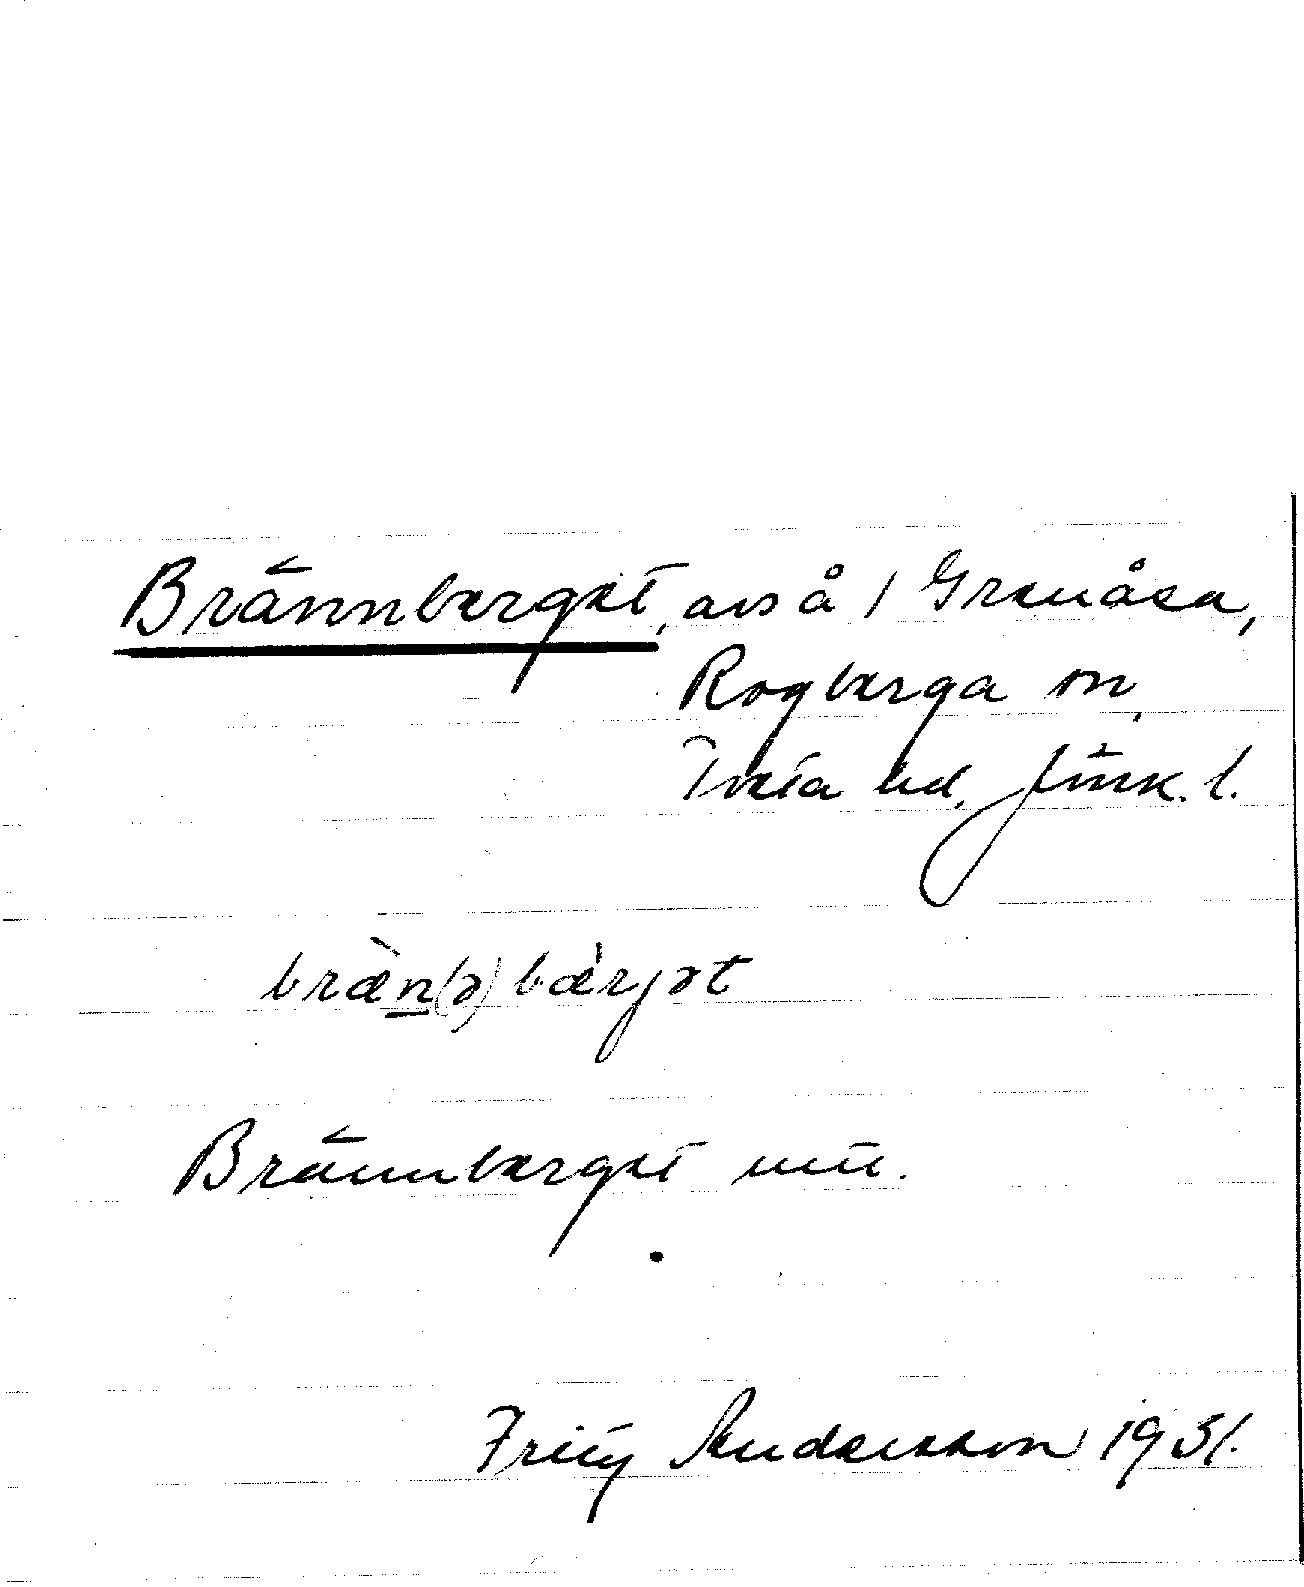 Brännberget, avs å / Grenåsa,
Rogberga sn,
Tveta hd, Jönk. l.
bræ̀n(ə)bæ̀rjət
Brännberget
Fritz Andersson 1931.